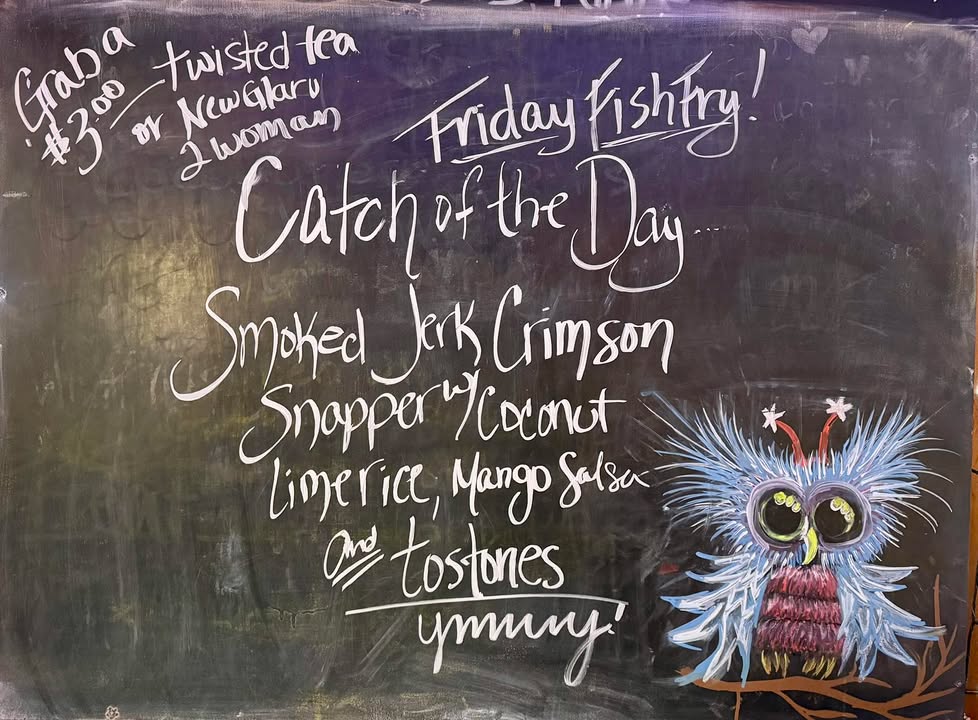 Grab a
$3.00
twisted tea
or New Glaru
2 woman
Friday Fish Fry!
Catch of the Day...
Smoked Jerk Crimson
Snapper w/ Coconut
Lime rice, Mango Salsa
and tostones
ymmy!